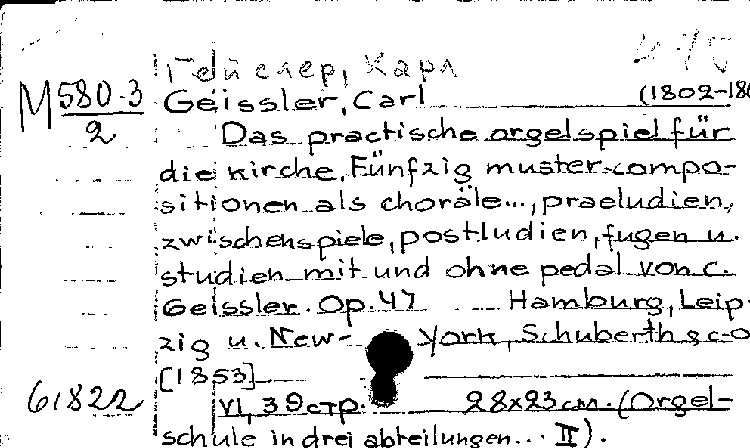 Гейслер, Карл
M 580-3
2
Geissler, Carl (1802-186
Das practische orgelspiel für
die kirche. Fünfzig muster-compo-
sitionen als choräle..., praeludien,
zwischenspiele, postludien, fugen u.
studien mit und ohne pedal von C.
Geissler. Op. 47 Hamburg, Leip-
zig u. New-York, Schuberth & co
[1853]
61822
VI, 39 стр. 28x23 см. (Orgel-
schule in drei abteilungen... II).